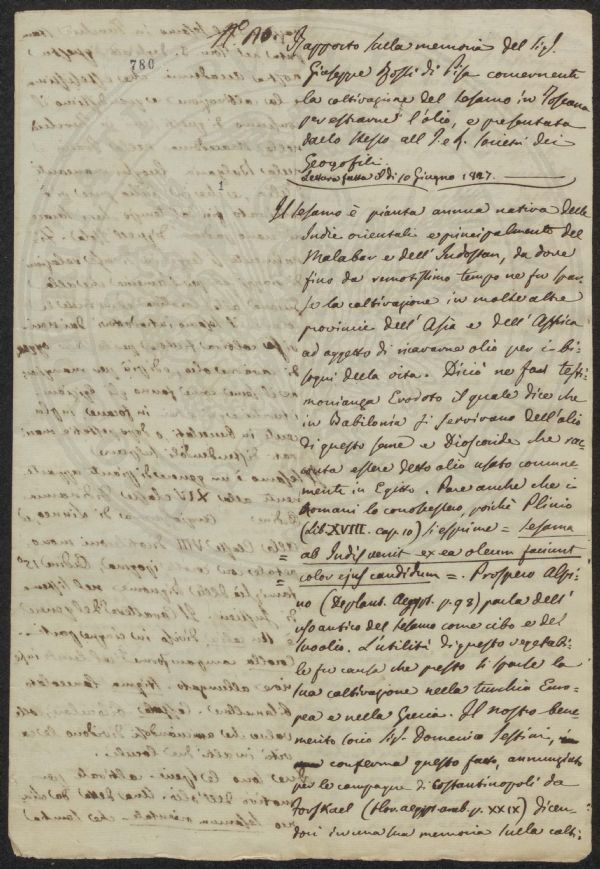 780
1
Rapporto sulla memoria del Sig.
Giuseppe Rossi di Pisa concernente
la coltivazione del Sesamo in Toscana
per estrarne l'olio, e presentata
dallo stesso all' I. e R. Società dei
Georgofili.
Lettura fatta il dì 10 Giugno 1827.
Il Sesamo è pianta annua nativa delle
Indie orientali e principalmente del
Malabar e dell' Indostan, da dove
fino da remotissimo tempo ne fu spar-
sa la coltivazione in molte altre
provincie dell' Asia e dell' Affrica
ad oggetto di ricavarne olio per i bi-
sogni della vita. Di ciò ne fan testi-
monianza Erodoto il quale dice che
in Babilonia si servivano dell'olio
di questo seme e Dioscoride che rac-
conta essere detto olio usato comune
mente in Egitto. Pare anche che i
Romani lo conoscessero, poichè Plinio
(Lib. XVIII. cap. 10) si esprime = Sesama
ab Indis venit ex ea oleum faciunt
color ejus candidum =. Prospero Alpi-
no (De plant. Aegypt. p. 98) parla dell'
uso antico del Sesamo come cibo e del
suo olio. L'utilità di questo vegetabi-
le fu causa che presto si sparse la
sua coltivazione nella turchia Euro-
pea e nella Grecia. Il nostro bene-
merito socio Sig. Domenico Sestini,
conferma questo fatto, annunziato
per le campagne di Costantinopoli da
Forskael (flor. aegypt. arab. p. XXIX) dicen-
doci in una sua memoria sulla colti-